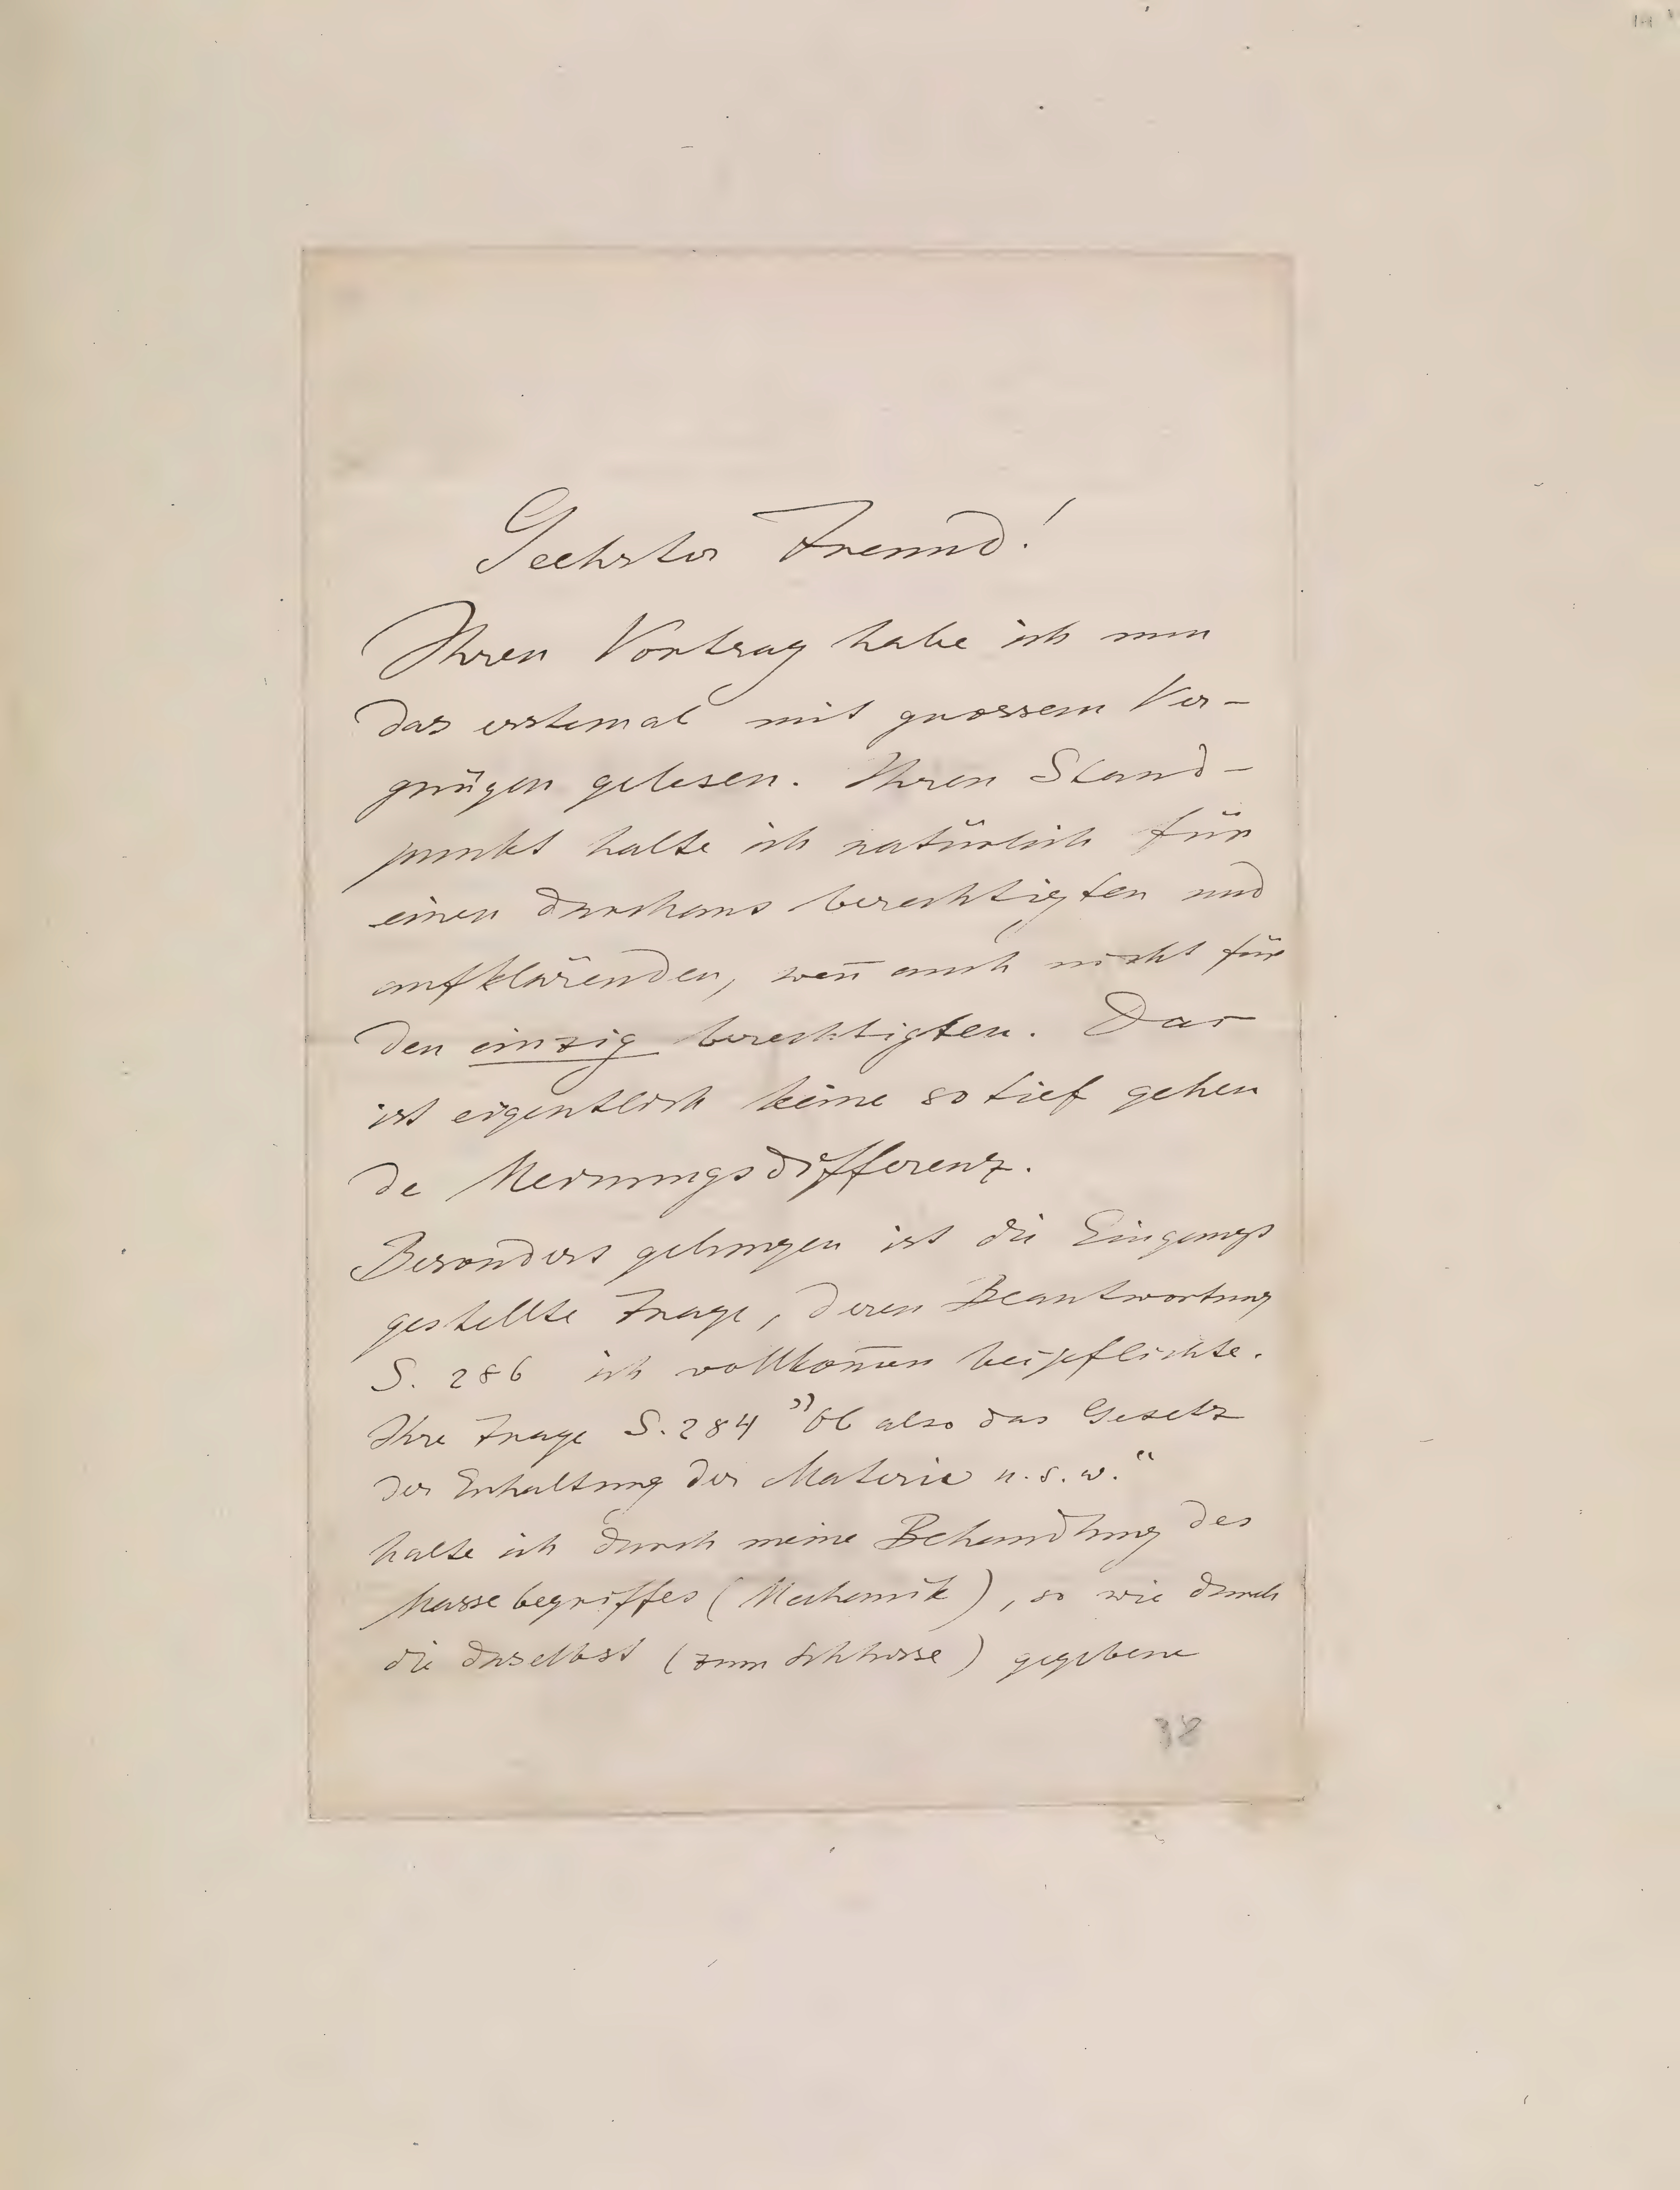 Geehrter Freund!
Ihren Vortrag habe ich nun
das erstemal mit grossem Ver-
gnügen gelesen. Ihren Stand-
punkt halte ich natürlich für
einen durchaus berechtigten und
aufklärenden, wen̄ auch nicht für
den einzig berechtigten. Das
ist eigentlich keine so tief gehen
de Meinungsdifferenz.
Besonders gelungen ist die Eingangs
gestellte Frage, deren Beantwortung
S. 286 ich vollkom̄en beipflichte.
Ihre Frage S. 284 "Ob also das Gesetz
der Erhaltung der Materie u.s.w."
halte ich durch meine Behandlung des
Massebegriffes (Mechanik), so wie durch
die daselbst (zum Schlusse) gegebene
38